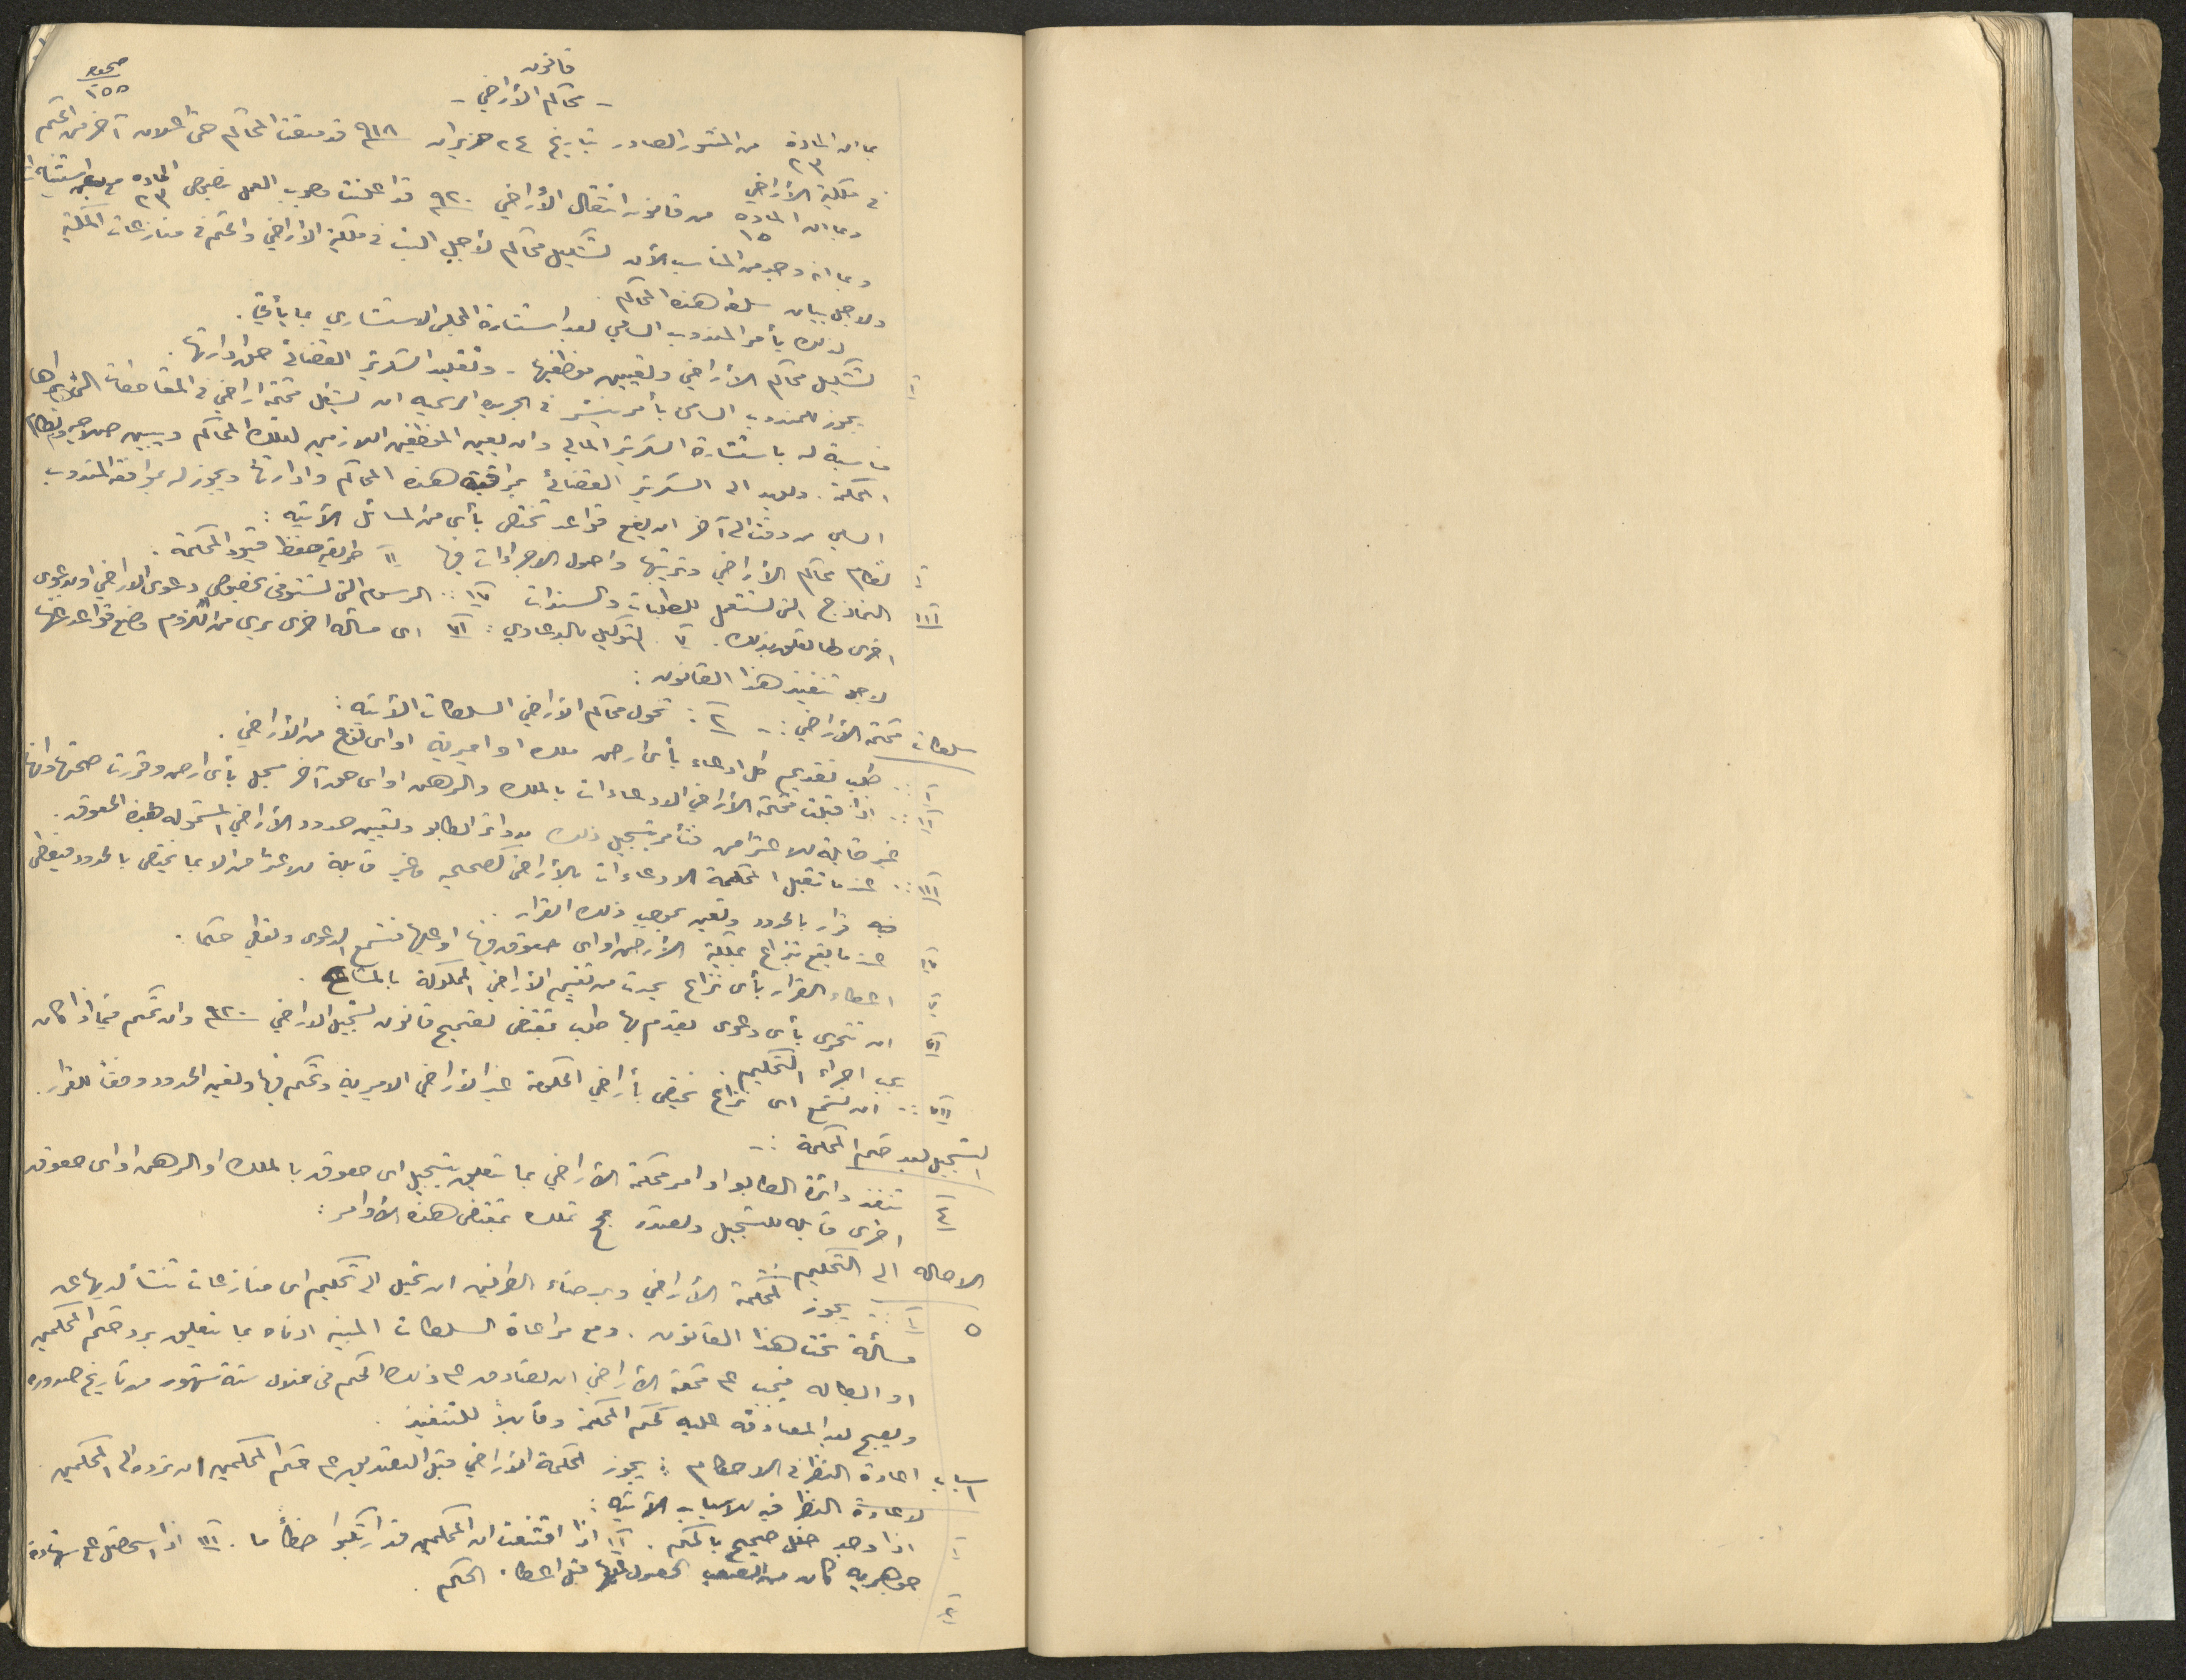 صحيفه
١٥٥
قانون
- محاكم الأراضي -
بما ان المادة ٢٣ من المنشور الصادر بتاريخ ٢٤ حزيران ٩١٨ قد منعت المحاكم حتى اعلان آخر من الحكم
في ملكية الأراضي
وبما ان المادة ١٥ من قانون انتقال الأراضي ٩٢٠ قد اعلنت وجوب العمل بنصوص المادة ٢٣ مع بعض استثناءات
وبما انه وجد من المناسب الآن تشكيل محاكم لأجل البت في ملكية الاراضي والحكم في منازعات الملكية
ولاجل بيان سلطة هذه المحاكم
لذلك يأمر المندوب السامي بعد استشارة المجلس الاستشاري بما يأتي .
تشكيل محاكم الأراضي وتعيين موظفيها - وتقليد السكرتير القضائي حق ادارتها .
يجوز للمندوب السامي بأمر ينشر في الجريده الرسميه ان يشكل محكمة اراضي في المقاطعات التي يراها
مناسبة له باستشارة السكرتير المالي وان يعين الموظفين اللازمين لتلك المحاكم ويبين صلاحية ونظام
المحكمة . ويعهد الى السكرتير القضائي بمراقبة هذه المحاكم وادارتها ويجوز له بموافقة المندوب
السامي من وقت الى آخر ان يضع قواعد تختص بأي من المسائل الآتيه :
I نظام محاكم الأراضي وترتيبها واصول الاجراءات فيها II طريقة حفظ قيود المحكمة .
III النماذج التي تستعمل للطلبات والسندات IV : الرسوم التي تستوفى بخصوص دعوى الاراضي او بدعوى
اخرى لها تعلق بذلك . V . التوكيل بالدعاوي : VI اى مسألة اخرى يرى من اللزوم وضع قواعد عنها
لاجل تنفيذ هذا القانون :
سلطات محكمة الأراضي : - ٢ : تخول محاكم الأراضي السلطات الآتيه :
I : طلب تقديم كل ادعاء بأي ارض ملك او اميرية او اى نوع من الأراضي .
II : اذا قبلت محكمة الأراضي الادعاءات بالملك والرهن او اى حق آخر مسجل بأى ارض وقررت صحتها وانها
غير قابلة للاعتراض فتأمر بتسجيل ذلك بدوائر الطابو وتعيين حدود الأراضي المشموله بهذه الحقوق .
III : عندما تقبل المحكمة الادعاءات بالأراضي كصحيحه وغير قابلة للاعتراض الا بما يختص بالحدود فيعطى
فيه قرار بالحدود وتعين بموجب ذلك القرار
IV عندما يقع نزاع بملكية الأرض او اى حقوق فيها او عليها فتسمع الدعوى وتعطي حكما .
V اعطاء القرار بأى نزاع يحدث من تقسيم الأراضي المملوكة بالمشاع .
VI ان تتحرى بأى دعوى يقدم بها طلب بمقتضى تصحيح قانون تسجيل الاراضي ٩٢٠ وان تحكم فيما اذا كان
يجب اجراء التحكيم
VII : ان تسمع اى نزاع يختص بأراضي الحكومة غير الأراضي الاميرية وتحكم فيها وتعين الحدود وفقاً للقرار .
التسجيل بعد حكم المحكمة : -
٤ تنفذ دائرة الطابو اوامر محكمة الأراضي بما يتعلق بتسجيل اى حقوق بالملك او الرهن او اى حقوق
اخرى قابله للتسجيل وتصدر حجج تملك بمقتضى هذه الأوامر :
الاحاله الى التحكيم :
٥ I : يجوز لمحكمة الأراضي وبرضاء الطرفين ان تحيل الى تحكيم اى منازعات تنشأ لديها عن
مسألة تحت هذا القانون . ومع مراعاة السلطات المبينه ادناه بما يتعلق برد حكم المحكمين
او ابطاله فيجب على محكمة الأراضي ان تصادق على ذلك الحكم في خلال ستة شهور من تاريخ صدوره
ويصبح بعد المصادقه عليه كحكم المحكمة وقابلاً للتنفيذ .
اسباب اعادة النظر في الاحكام : يجوز لمحكمة الأراضي قبل التصديق على حكم المحكمين ان ترده الى المحكمين
لاعادة النظر فيه للاسباب الآتيه :
I اذا وجد خلل صحيح بالحكم . II اذا اقتنعت ان المحكمين قد ارتكبوا خطأً ما . III اذا استحصل على شهادة
جوهريه كان من الصعب الحصول عليها قبل اعطاء الحكم .